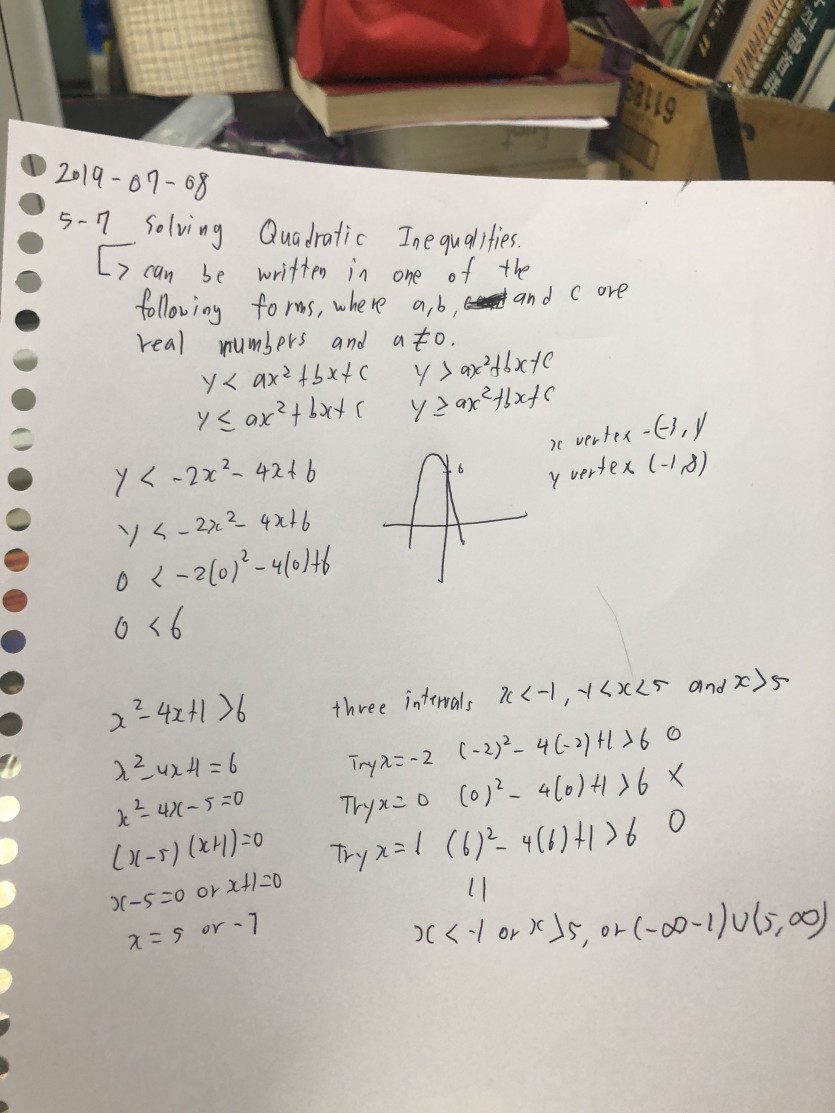 61189
2019-07-08
5-7 Solving Quadratic Inequalities.
can be written in one of the
following forms, where a,b, and c are
real numbers and a≠0.
y < ax²+bx+c y > ax²+bx+c
y ≤ ax²+bx+c y ≥ ax²+bx+c
x vertex -(-3, 1
y vertex (-1,8)
6
y < -2x²- 4x+6
y < -2x²- 4x+6
0 < -2(0)²-4(0)+6
0 < 6
x²-4x+1 >6
x²-4x+1 = 6
x²-4x-5=0
(x-5)(x+1)=0
x-5=0 or x+1=0
x = 5 or -1
three intervals x<-1, -1<x<5 and x>5
Try x=-2 (-2)²- 4(-2)+1>6 O
Try x= 0 (0)²- 4(0)+1 >6 X
Try x= 1 (6)²- 4(6)+1>6 O
11
x < -1 or x >5, or (-∞-1)∪(5,∞)